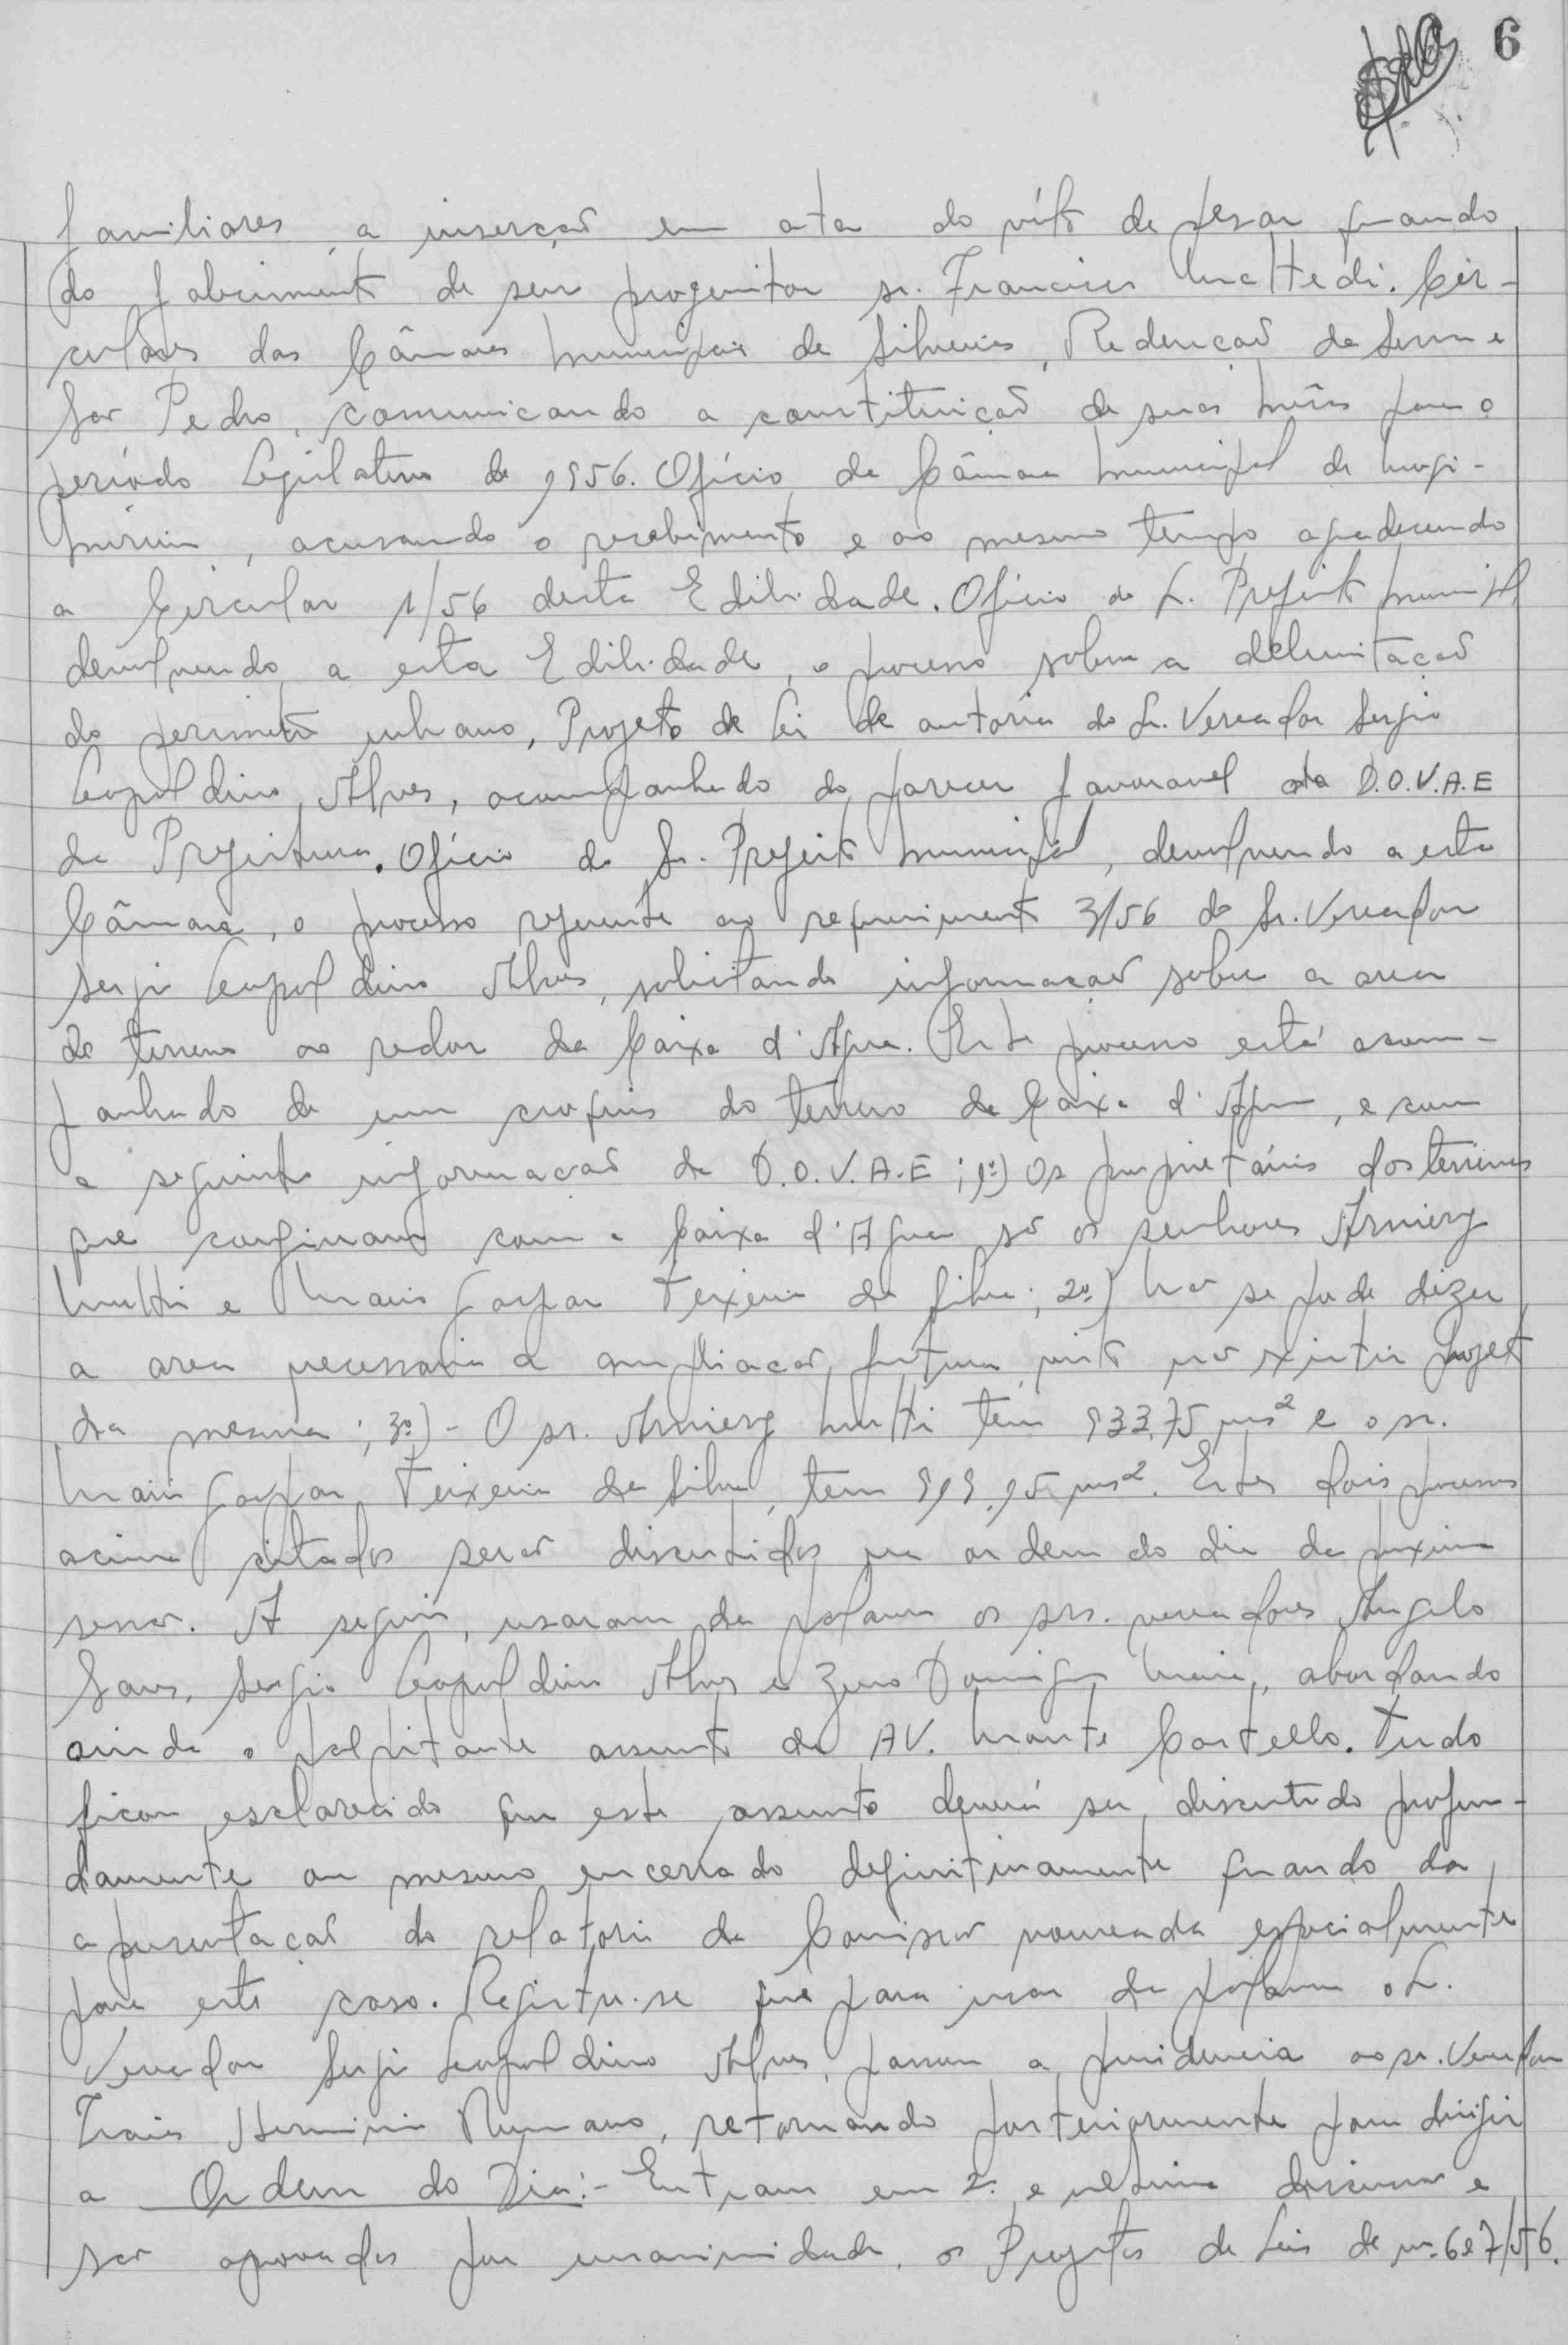 6
familiares, a inserção em ata do vóto de pesar quando
do falecimento de seu progenitor sr. Francisco Cir-
culares das Câmaras Municipais de Silveiras, Redenção da Serra e
São Pedro, comunicando a constituição de suas Mêsas para o
período Legislativo de 1956. Ofício da Câmara Municipal de Mogi-
Mirim, acusando o recebimento e ao mesmo tempo agradecendo
a Circular 1/56 desta Edilidade. Ofício do Sr. Prefeito Municipal,
devolvendo a esta Edilidade, o processo sobre a delimitação
do perimetro urbano, Projeto de Lei de autoria do Sr. Vereador Sergio
Leopoldino Alves, acompanhado do parecer favoravel da D.O.V.A.E
da Prefeitura. Ofício do Sr. Prefeito Municipal, devolvendo a esta
Câmara, o processo referente ao requerimento 3/56 do Sr. Vereador
Sergio Leopoldino Alves, solicitando informação sobre a area
de terreno ao redor da Caixa d'Agua. Este processo está acom-
panhado de um croquis do terreno da Caixa d'Agua, e com
a seguinte informação da D.O.V.A.E; 1º) Os proprietários dos terrenos
que confinam com a Caixa d'Agua são os senhores
e Mario Gaspar Teixeira da Silva; 2º) Não se pode dizer
a area necessaria a ampliação futura visto não existir projeto
da mesma; 3º)- O sr. tem 933,75 ms² e o sr.
Mario Gaspar Teixeira da Silva, tem 919,95 ms². Estes dois processos
acima citados serão discutidos na ordem do dia da proxima
sessão. A seguir, usaram da palavra os srs. vereadores Angelo
Sergio Leopoldino Alves e Zeno Domingues Maia, abordando
ainda o palpitante assunto da AV. Monte Castello. Tudo
ficou esclarecido que este assunto deverá ser discutido profun-
damente ou mesmo encerrado definitivamente quando da
apresentação do relatorio da Comissão nomeada especialmente
para este caso. Registre-se que para usar da palavra o Sr.
Vereador Sergio Leopoldino Alves, passou a presidencia ao sr. Vereador
Herminio Romano, retornando posteriormente para dirigir
a Ordem do Dia:- Entram em 2ª e ultima discussão e
são aprovados por unanimidade, os Projetos de Leis de nºs 6 e 7/56.